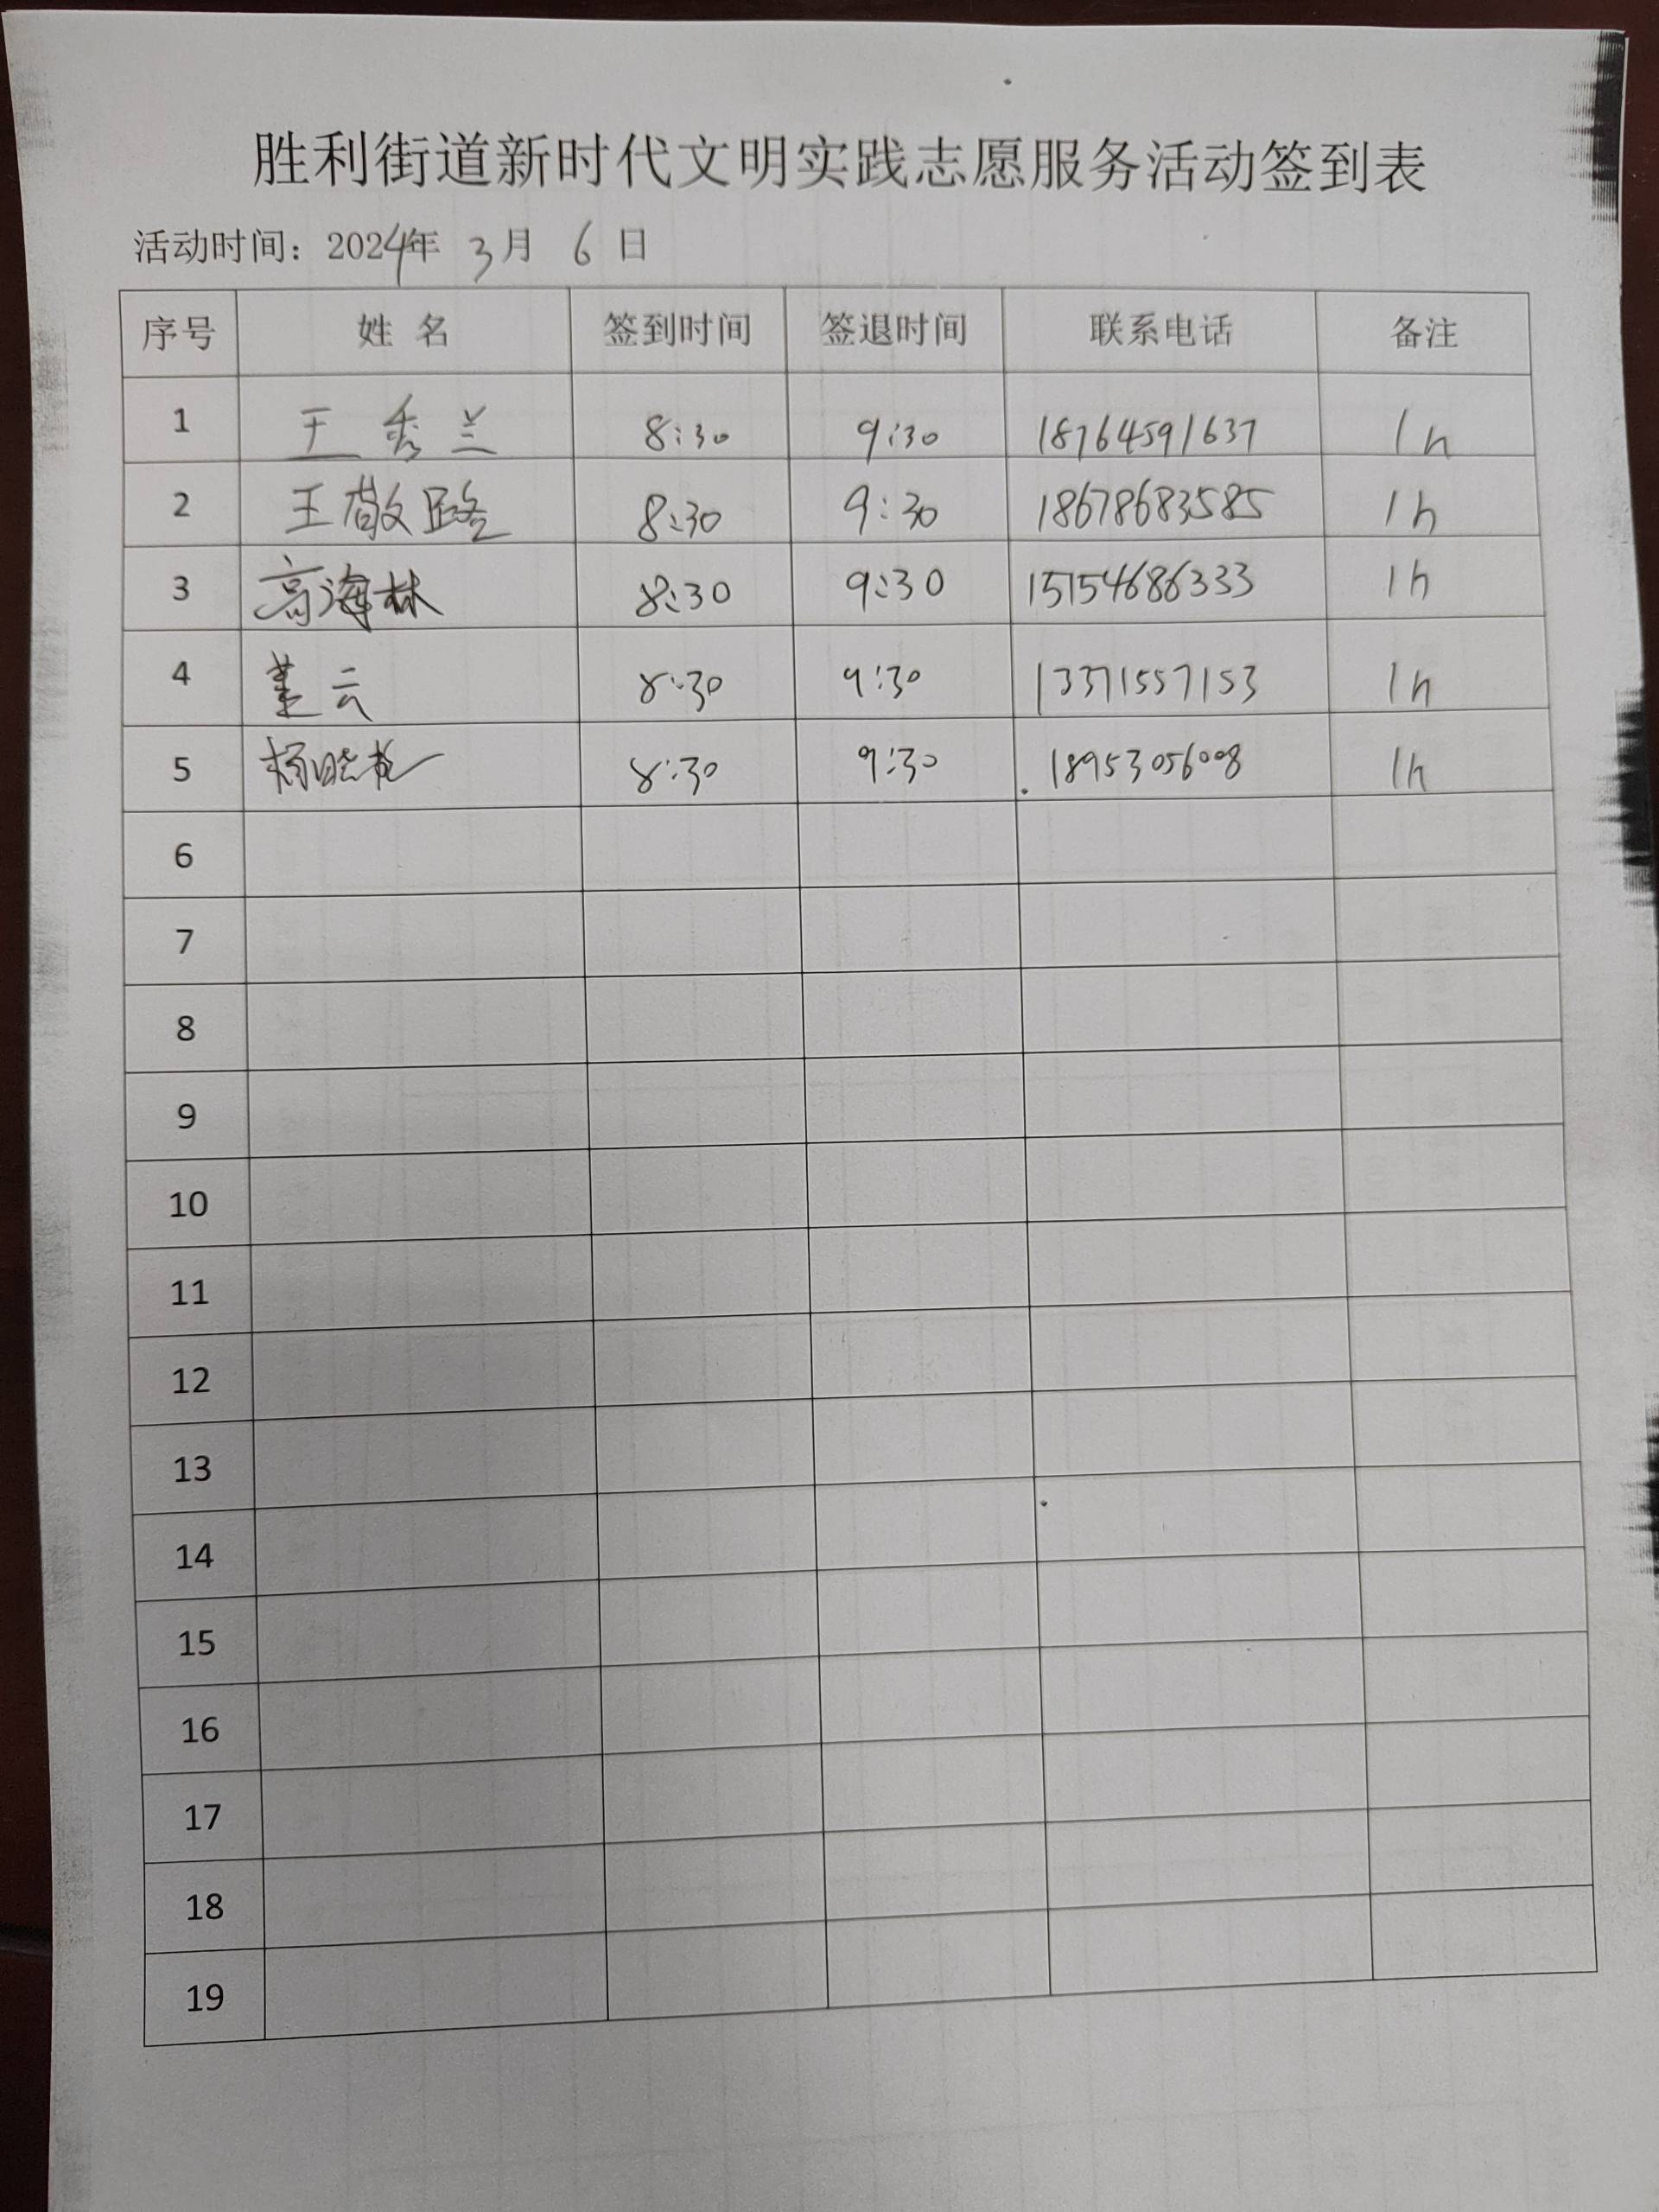 胜利街道新时代文明实践志愿服务活动签到表
活动时间：2024年 3月 6日
序号 姓名 签到时间 签退时间 联系电话 备注
1 王秀兰 8:30 9:30 18764591637 1h
2 王敬路 8:30 9:30 18678683585 1h
3 高海林 8:30 9:30 15154686333 1h
4 董云 8:30 9:30 13371557153 1h
5 8:30 9:30 18953056008 1h
6
7
8
9
10
11
12
13
14
15
16
17
18
19